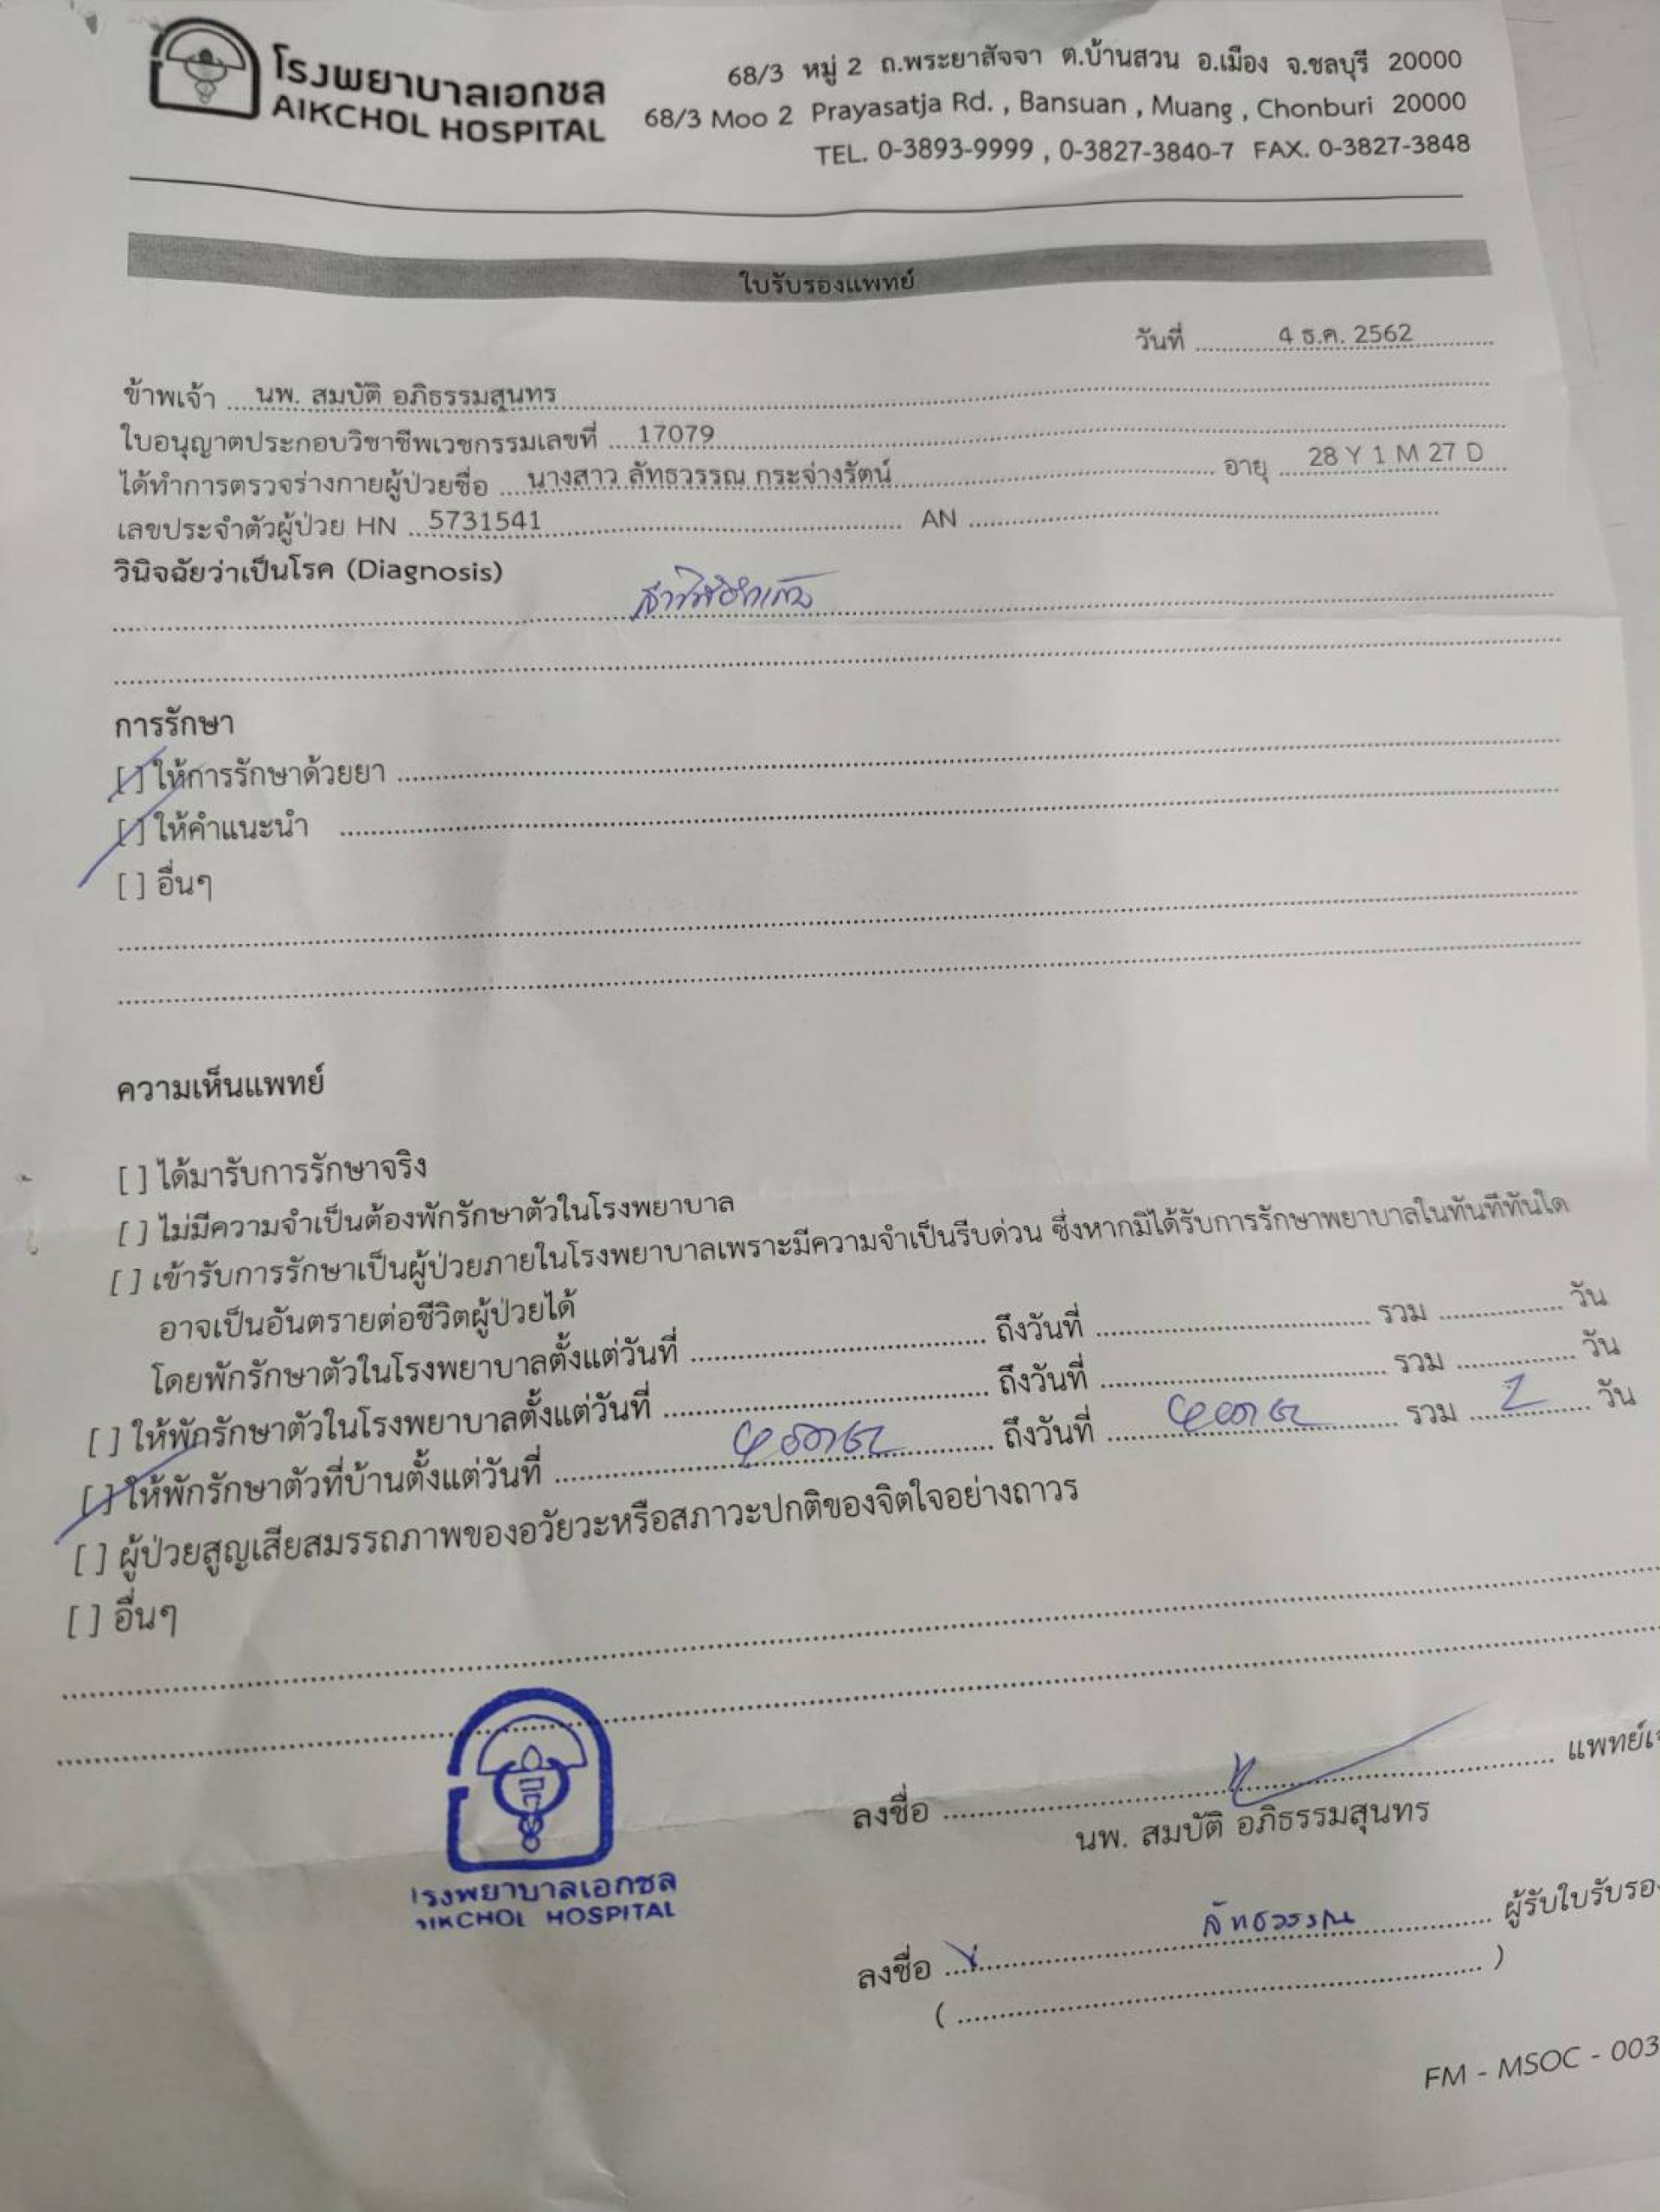 โรงพยาบาลเอกชล
AIKCHOL HOSPITAL
68/3 หมู่ 2 ถ.พระยาสัจจา ต.บ้านสวน อ.เมือง จ.ชลบุรี 20000
68/3 Moo 2 Prayasatja Rd. , Bansuan , Muang , Chonburi 20000
TEL. 0-3893-9999 , 0-3827-3840-7 FAX. 0-3827-3848
ใบรับรองแพทย์
วันที่ 4 ธ.ค. 2562
ข้าพเจ้า นพ. สมบัติ อภิธรรมสุนทร
ใบอนุญาตประกอบวิชาชีพเวชกรรมเลขที่ 17079
ได้ทำการตรวจร่างกายผู้ป่วยชื่อ นางสาว ลัทธวรรณ กระจ่างรัตน์ อายุ 28 Y 1 M 27 D
เลขประจำตัวผู้ป่วย HN 5731541 AN
วินิจฉัยว่าเป็นโรค (Diagnosis)
การรักษา
[ ] ให้การรักษาด้วยยา
[ ] ให้คำแนะนำ
[ ] อื่นๆ
ความเห็นแพทย์
[ ] ได้มารับการรักษาจริง
[ ] ไม่มีความจำเป็นต้องพักรักษาตัวในโรงพยาบาล
[ ] เข้ารับการรักษาเป็นผู้ป่วยภายในโรงพยาบาลเพราะมีความจำเป็นรีบด่วน ซึ่งหากมิได้รับการรักษาพยาบาลในทันทีทันใด
อาจเป็นอันตรายต่อชีวิตผู้ป่วยได้
โดยพักรักษาตัวในโรงพยาบาลตั้งแต่วันที่ ถึงวันที่ รวม วัน
[ ] ให้พักรักษาตัวในโรงพยาบาลตั้งแต่วันที่ ถึงวันที่ รวม วัน
[ ] ให้พักรักษาตัวที่บ้านตั้งแต่วันที่ ถึงวันที่ รวม 1 วัน
[ ] ผู้ป่วยสูญเสียสมรรถภาพของอวัยวะหรือสภาวะปกติของจิตใจอย่างถาวร
[ ] อื่นๆ
โรงพยาบาลเอกชล
AIKCHOL HOSPITAL
ลงชื่อ แพทย์
นพ. สมบัติ อภิธรรมสุนทร
ลงชื่อ ลัทธวรรณ ผู้รับใบรับรอง
( )
FM - MSOC - 003